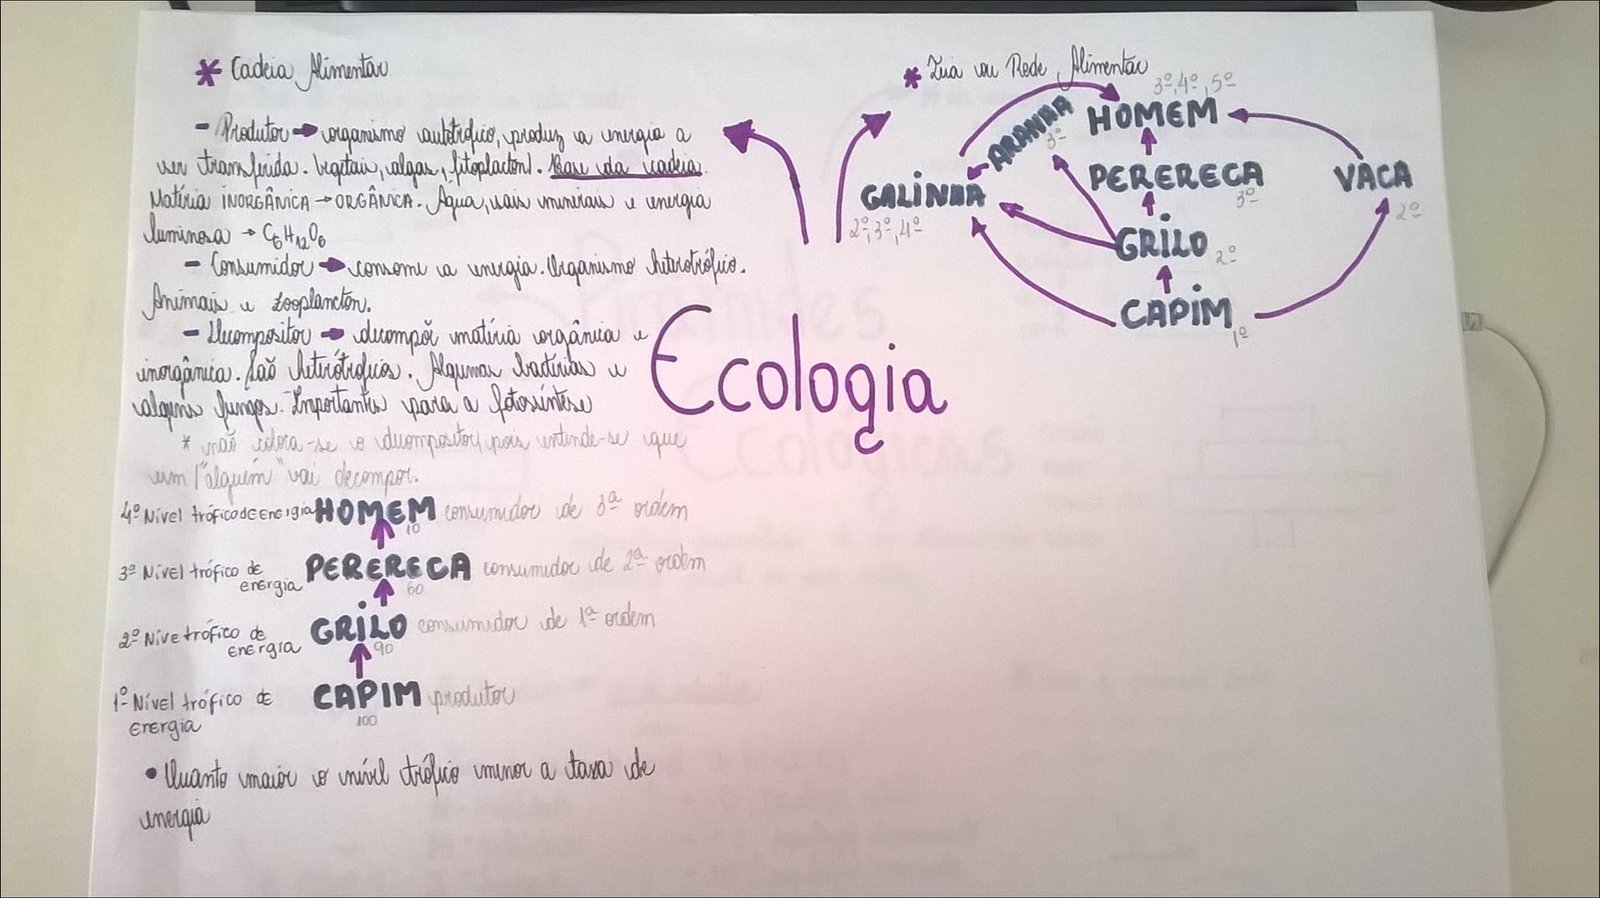 * Cadeia Alimentar
- Produtor → organismo autotrófico, produz a energia a
ser transferida. Vegetais, algas, fitoplacton). Base da cadeia.
Matéria INORGÂNICA → ORGÂNICA. Água, sais minerais e energia
luminosa → C6H12O6
- Consumidor → consome a energia. Organismo heterotrófico.
Animais e zooplancton.
- Decompositor → decompõe matéria orgânica e
inorgânica. São heterótroficos. Algumas bactérias e
alguns fungos. Importantes para a fotosíntese
* não coloca-se o decompositor, pois entende-se que
um "alguém" vai decompor.
4º Nível trófico de energia HOMEM consumidor de 3ª ordem
10
3º Nível trófico de PERERECA consumidor de 2ª ordem
energia 60
2º Nive trófico de GRILO consumidor de 1ª ordem
energia 90
1º Nível trófico de CAPIM produtor
energia 100
• Quanto maior o nível trófico menor a taxa de
energia
Ecologia
* Teia ou Rede Alimentar
3º, 4º, 5º
HOMEM
ARANHA
3º
PERERECA
3º
VACA
2º
GALINHA
2º, 3º, 4º
GRILO 2º
CAPIM
1º